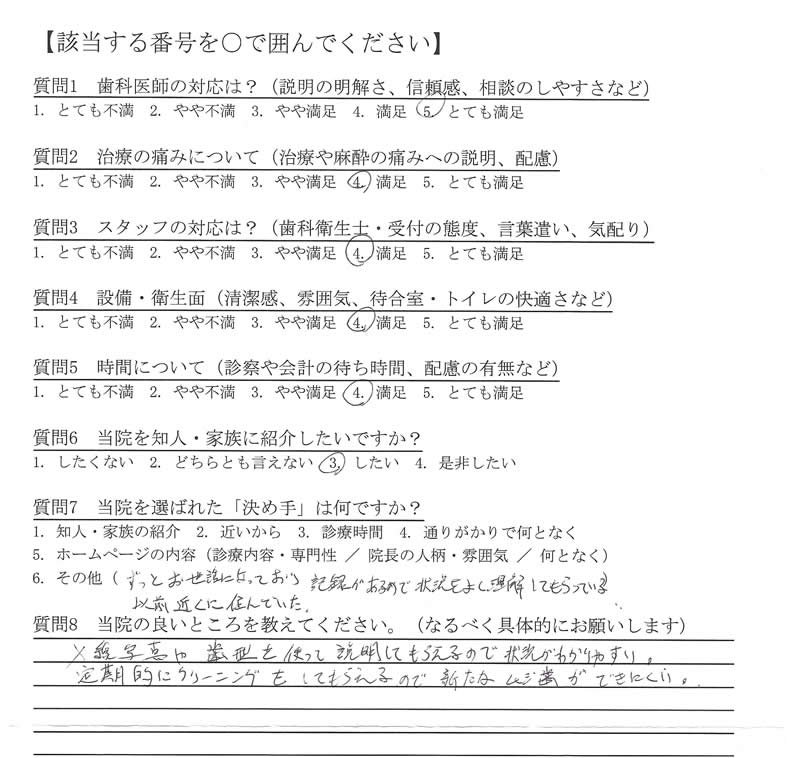 【該当する番号を〇で囲んでください】
質問1 歯科医師の対応は？（説明の明解さ、信頼感、相談のしやすさなど）
1. とても不満 2. やや不満 3. やや満足 4. 満足 5. とても満足
質問2 治療の痛みについて（治療や麻酔の痛みへの説明、配慮）
1. とても不満 2. やや不満 3. やや満足 4. 満足 5. とても満足
質問3 スタッフの対応は？（歯科衛生士・受付の態度、言葉遣い、気配り）
1. とても不満 2. やや不満 3. やや満足 4. 満足 5. とても満足
質問4 設備・衛生面（清潔感、雰囲気、待合室・トイレの快適さなど）
1. とても不満 2. やや不満 3. やや満足 4. 満足 5. とても満足
質問5 時間について（診察や会計の待ち時間、配慮の有無など）
1. とても不満 2. やや不満 3. やや満足 4. 満足 5. とても満足
質問6 当院を知人・家族に紹介したいですか？
1. したくない 2. どちらとも言えない 3. したい 4. 是非したい
質問7 当院を選ばれた「決め手」は何ですか？
1. 知人・家族の紹介 2. 近いから 3. 診療時間 4. 通りがかりで何となく
5. ホームページの内容（診療内容・専門性 ／ 院長の人柄・雰囲気 ／ 何となく）
6. その他（ずっとお世話になっており 記録があるので状況をよく理解してもらっている
以前近くに住んでいた.
質問8 当院の良いところを教えてください。（なるべく具体的にお願いします）
X線写真や歯型を使って説明してもらえるので状況がわかりやすい。
定期的にクリーニングをしてもらえるので新たなムシ歯ができにくい。